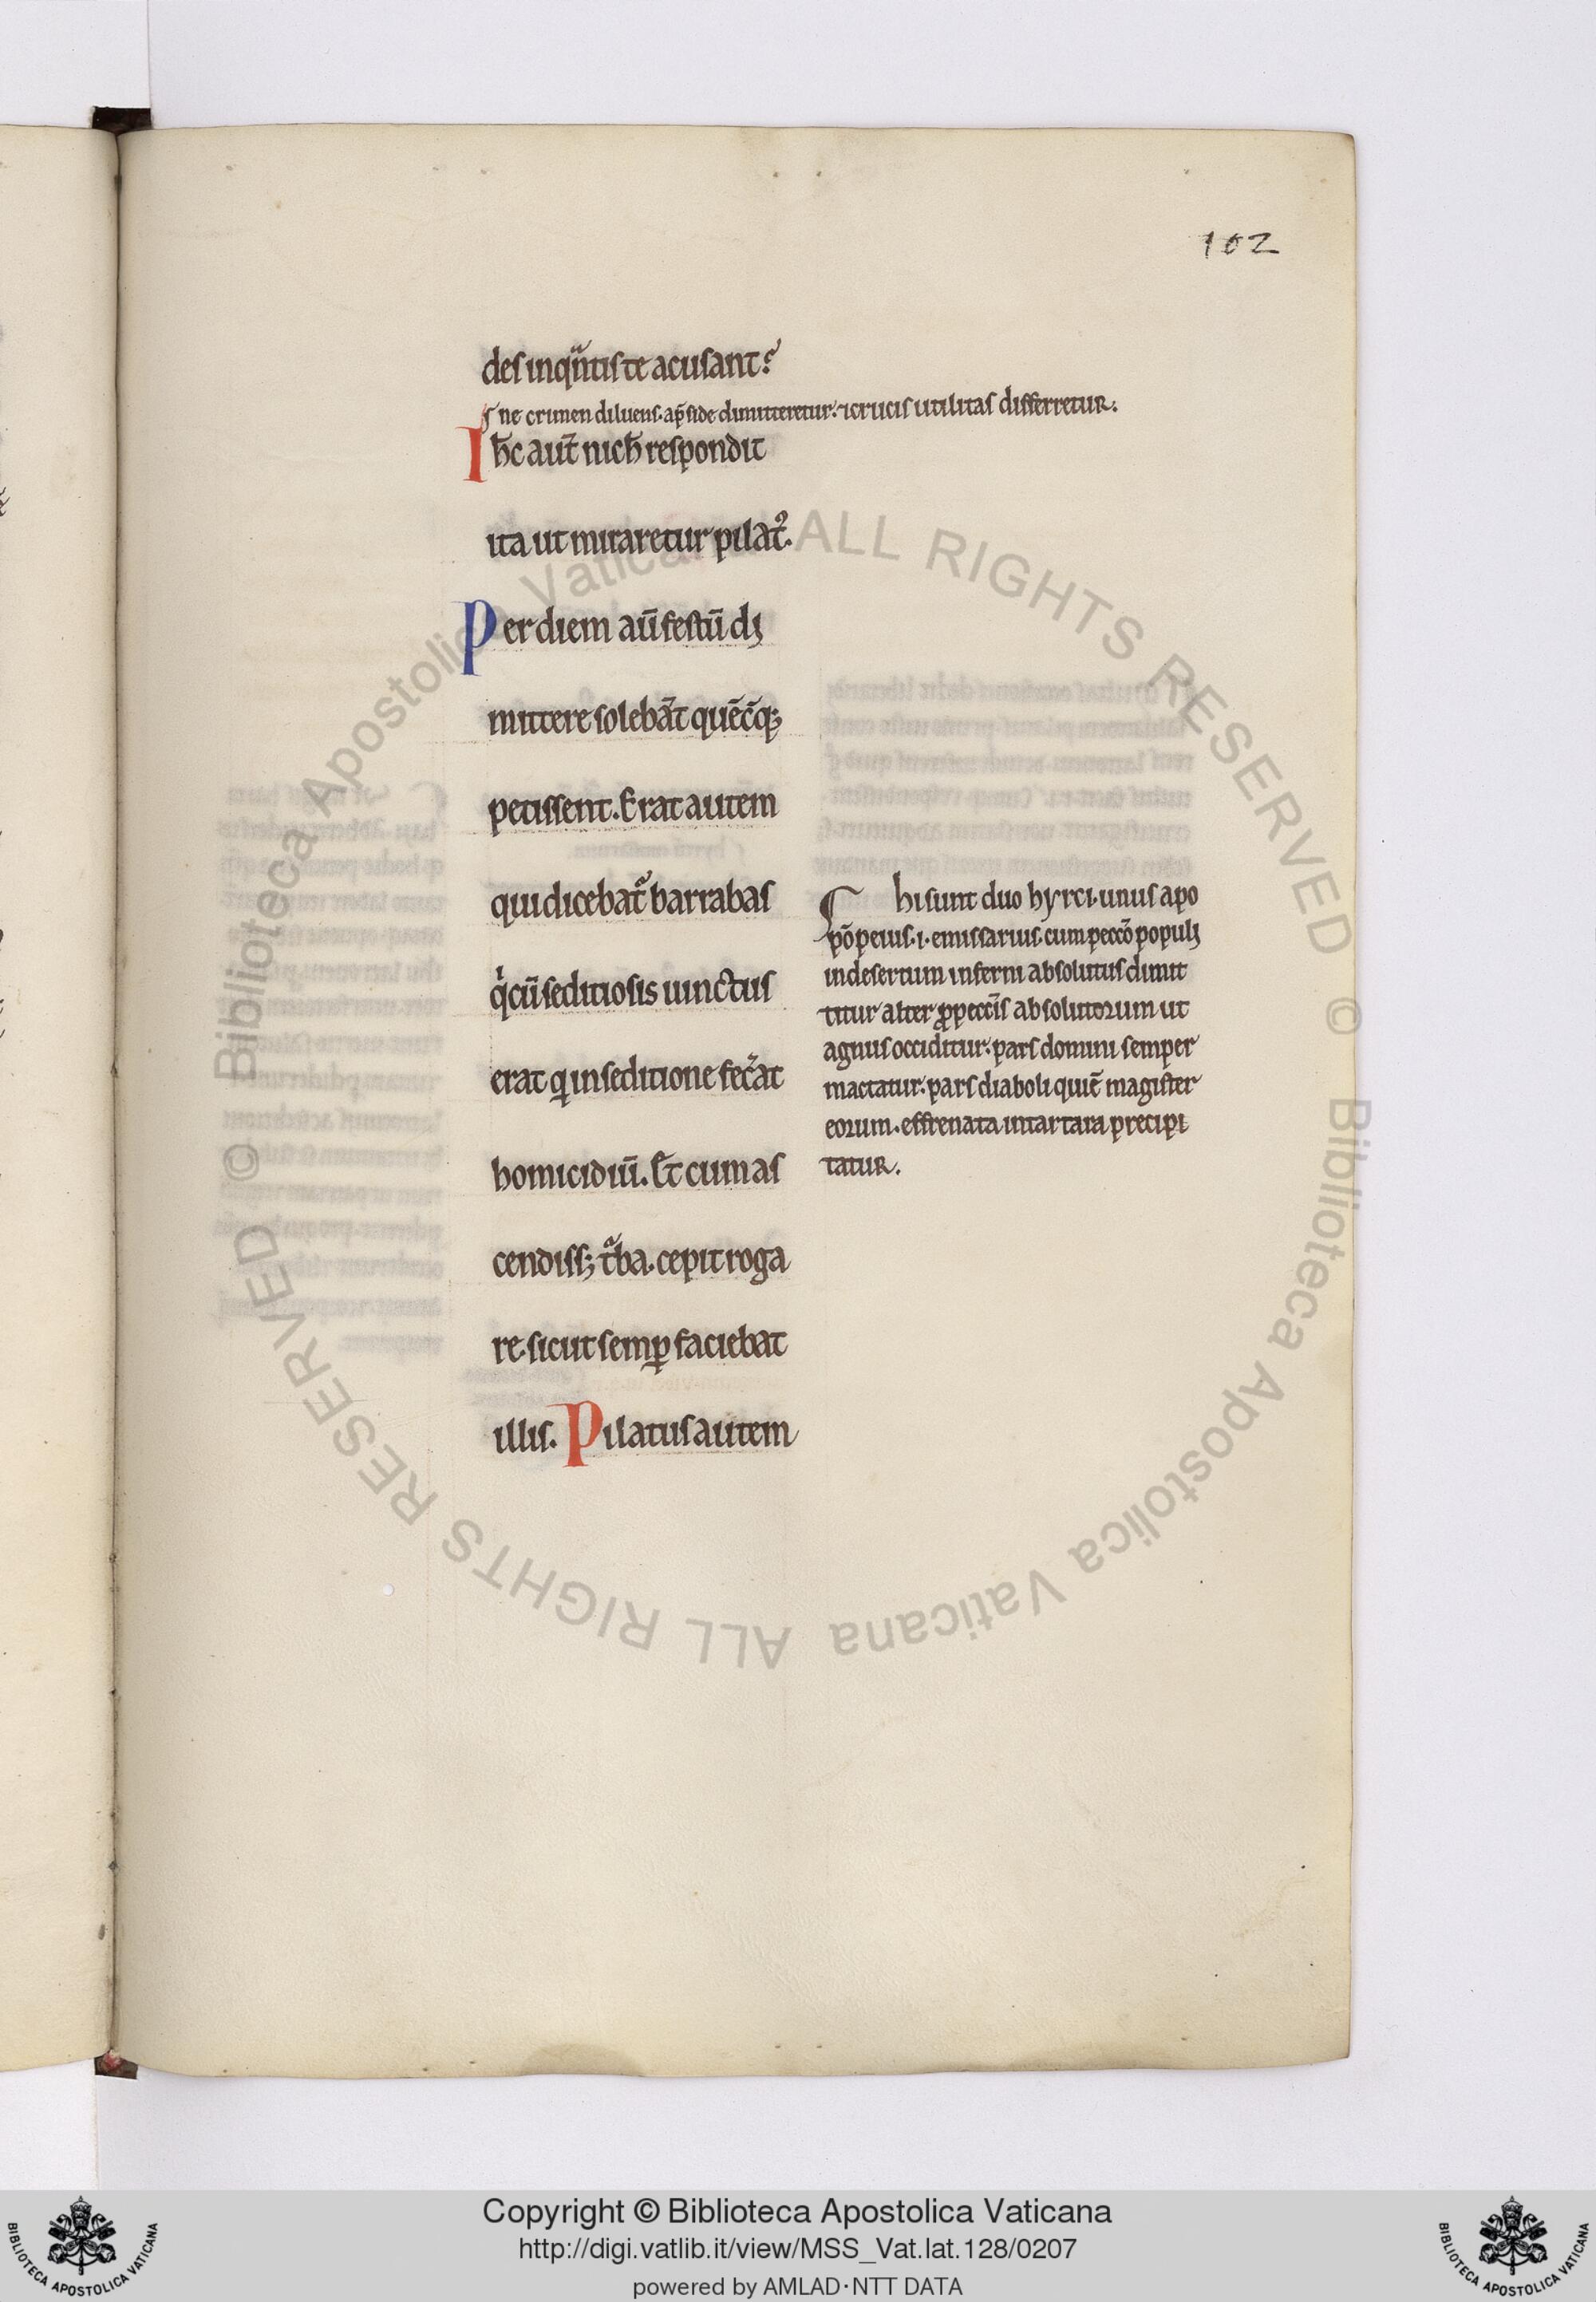 102
des inqͣntis te acusant?
ne crimen diluens. ap̄side dimitteretur. ⁊crucis utilitas differretur.
Ih̄c aut̄ nich̄ respondit
ita ut miraretur pilat᷒.
Per diem aū festū di
mittere solebāt quēcq̄;
petissent. Erat autem
qui dicebat᷑ barrabas
qͥ cū seditiosis uinctus
erat qͥ in seditione fec̄at
homicidiū. Et cum as
cendiss; tͬba. cepit roga
re. sicut semꝑ faciebat
illis. Pilatus autem
hi sunt duo hyrci. unus apo
pō peius .i. emissarius. cum peccō populi
in desertum inferni absolutus dimit
titur alter ꝓ peccīs absolutorum ut
agnus occiditur. pars domini semper
mactatur. pars diaboli qui ē magister
eorum. effrenata in tartara precipi
tatur.
© Biblioteca Apostolica Vaticana ALL RIGHTS RESERVED © Biblioteca Apostolica Vaticana ALL RIGHTS RESERVED
Copyright © Biblioteca Apostolica Vaticana
http://digi.vatlib.it/view/MSS_Vat.lat.128/0207
powered by AMLAD·NTT DATA
BIBLIOTECA APOSTOLICA VATICANA
BIBLIOTECA APOSTOLICA VATICANA